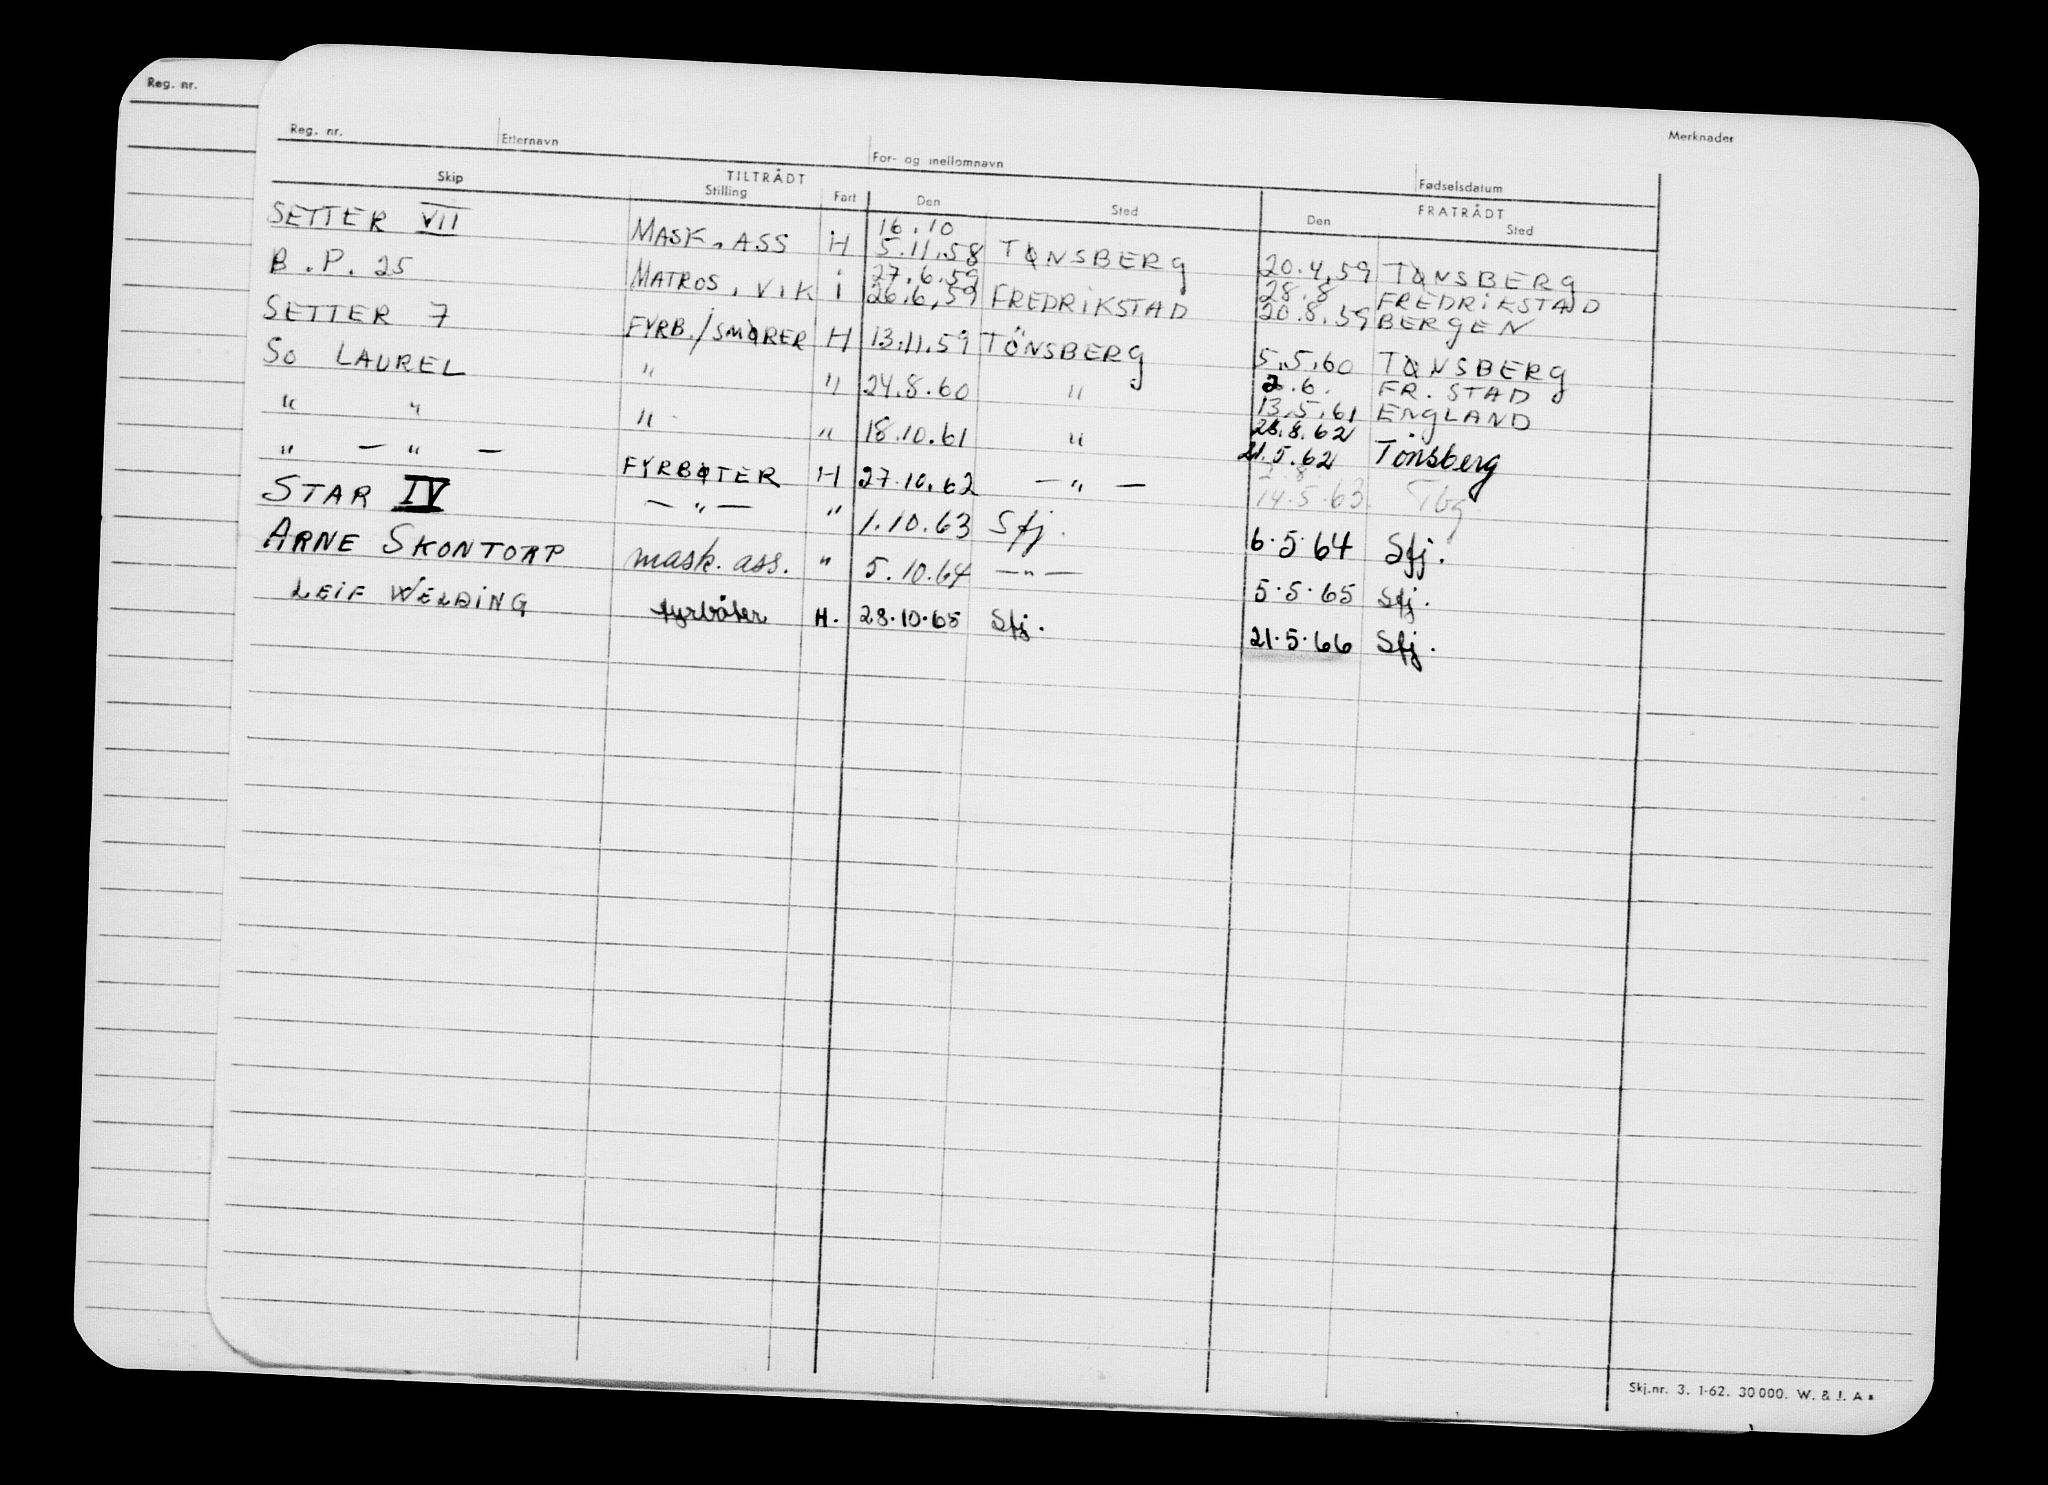 Reg. nr.
Reg. nr. Etternavn For- og mellomnavn Fødselsdatum Merknader
TILTRÅDT FRATRÅDT
Skip Stilling Fart Den Sted Den Sted
16.10
SETTER VII MASK. ASS H 5.11.58 TØNSBERG 20.4.59 TØNSBERG
27.6.59 28.8 FREDRIKSTAD
B.P. 25 MATROS. V.K i 26.6.59 FREDRIKSTAD 20.8.59 BERGEN
SETTER 7 FYRB./SMØRER H 13.11.59 TÖNSBERG 5.5.60 TØNSBERG
2.6. FR. STAD
So LAUREL " " 24.8.60 " 13.5.61 ENGLAND
28.8.62
" " " " 18.10.61 " 21.5.62 Tönsberg
" — " — FYRBØTER H 27.10.62 — " — 14.5.63. Tbg
STAR IV — " — " 1.10.63 Sfj. 6.5.64 Sfj.
ARNE SKONTORP mask. ass. " 5.10.64 — " — 5.5.65 Sfj.
LEIF WELDING fyrbøter H. 28.10.65 Sfj. 21.5.66 Sfj.
Skj.nr. 3. 1-62. 30 000. W. & J. A s